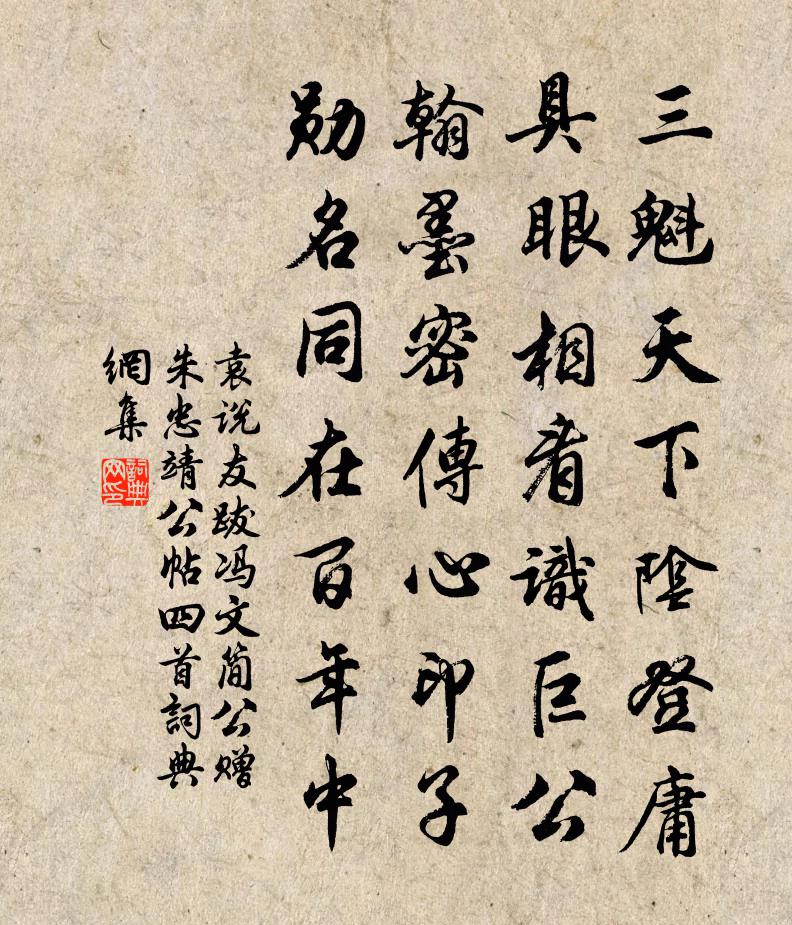 三魁天下陰登庸
具眼相看識巨公
翰墨密傳心印子
勛名同在百年中
袁说友跋冯文简公赠
朱忠靖公帖四首詞典
網集
詞典
网印